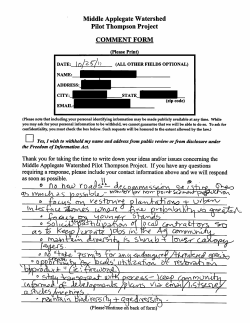 Middle Applegate Watershed
Pilot Thompson Project
COMMENT FORM
(Please Print)
DATE: 10/25/11 (ALL OTHER FIELDS OPTIONAL)
NAME:
ADDRESS:
CITY: STATE
(zip code)
EMAIL:
(Please note that including your personal identifying information may be made publicly available at any time. While
you may ask for your personal information to be withheld, we cannot guarantee that we will be able to do so. To ask for
confidentiality, you must check the box below. Such requests will be honored to the extent allowed by the law.)
Yes, I wish to withhold my name and address from public review or from disclosure under
the Freedom of Information Act.
Thank you for taking the time to write down your ideas and/or issues concerning the
Middle Applegate Watershed Pilot Thompson Project. If you have any questions
requiring a response, please include your contact information above and we will respond
as soon as possible.
o no new roads - decommission existing ones
as much as possible -
o focus on restoring plantations & urban
interface zones where fire probability is greatest
o focus on younger stands
o solicit participation of local contractors so
as to keep/create jobs in the A9 community
o maintain diversity in shrub & lower canopy
layers.
o no "take" permits for any endangered/threatened species
o opportunity for public utilization of restoration
byproduct (ie: firewood)
o stay transparent with process - keep community
informed of developments/plans via email/listserve/
articles/meetings
- maintain biodiversity + geodiversity -
(Please continue on back of form)